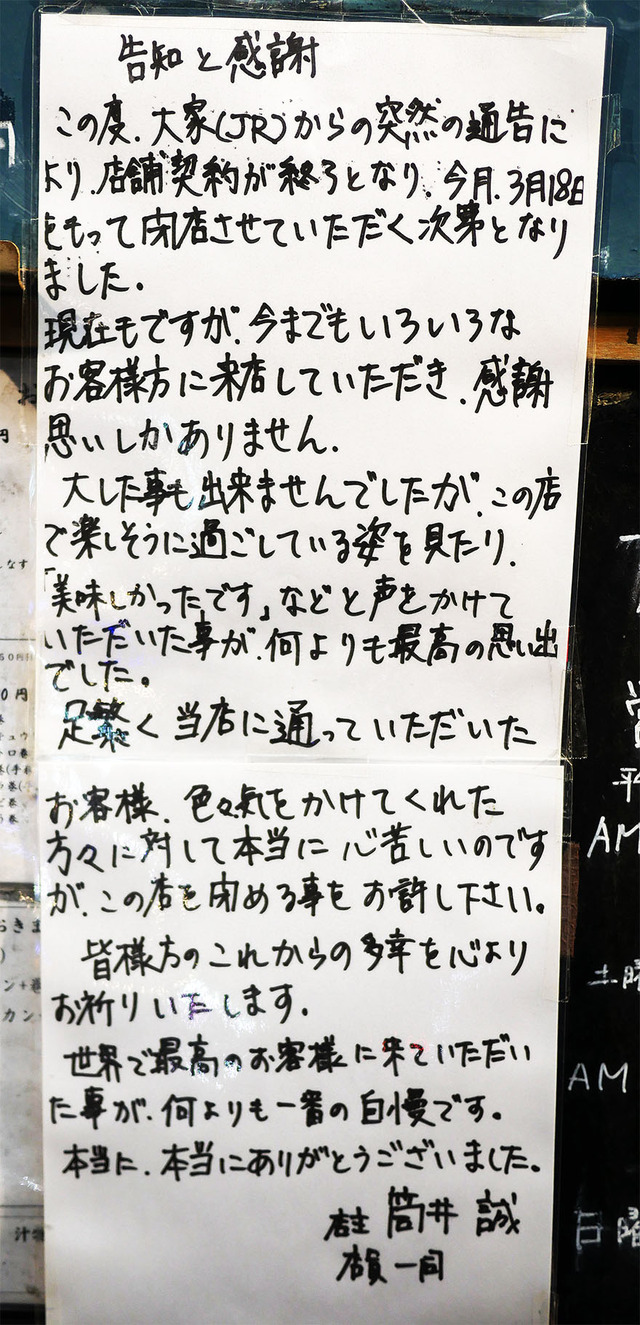 告知と感謝
この度、大家(JR)からの突然の通告に
より、店舗契約が終了となり、今月、3月18日
をもって閉店させていただく次第となり
ました。
現在もですが、今までもいろいろな
お客様方に来店していただき、感謝
思いしかありません。
大した事も出来ませんでしたが、この店
で楽しそうに過ごしている姿を見たり、
「美味しかったです」などと声をかけて
いただいた事が、何よりも最高の思い出
でした。
足繁く当店に通っていただいた
お客様、色々気をかけてくれた
方々に対して本当に心苦しいのです
が、この店を閉める事をお許し下さい。
皆様方のこれからの多幸を心より
お祈りいたします。
世界で最高のお客様に来ていただい
た事が、何よりも一番の自慢です。
本当に、本当にありがとうございました。
店主 筒井 誠
店員一同
AM
土曜
AM
日曜
汁物